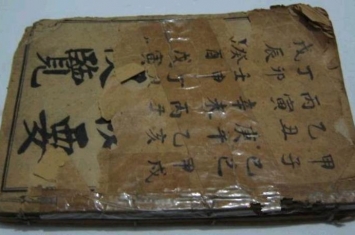 甲子
乙丑
丙寅
丁卯
戊辰
己巳
庚午
辛未
壬申
癸酉
甲戌
乙亥
丙子
丁
戊寅
要
覽